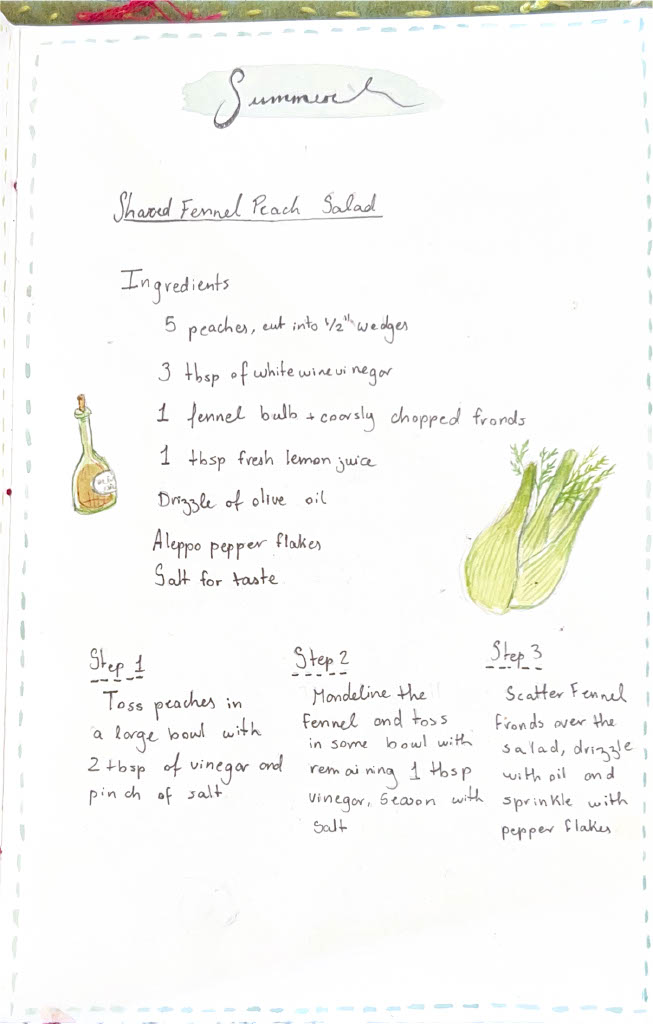 Summer
Shaved Fennel Peach Salad
Ingredients
5 peaches, cut into 1/2" wedges
3 tbsp of white wine vinegar
1 fennel bulb + coarsly chopped fronds
1 tbsp fresh lemon juice
Drizzle of olive oil
Aleppo pepper flakes
Salt for taste
Step 1
Toss peaches in
a large bowl with
2 tbsp of vinegar and
pinch of salt
Step 2
Mandeline the
fennel and toss
in same bowl with
remaining 1 tbsp
vinegar, Season with
salt
Step 3
Scatter Fennel
fronds over the
salad, drizzle
with oil and
sprinkle with
pepper flakes